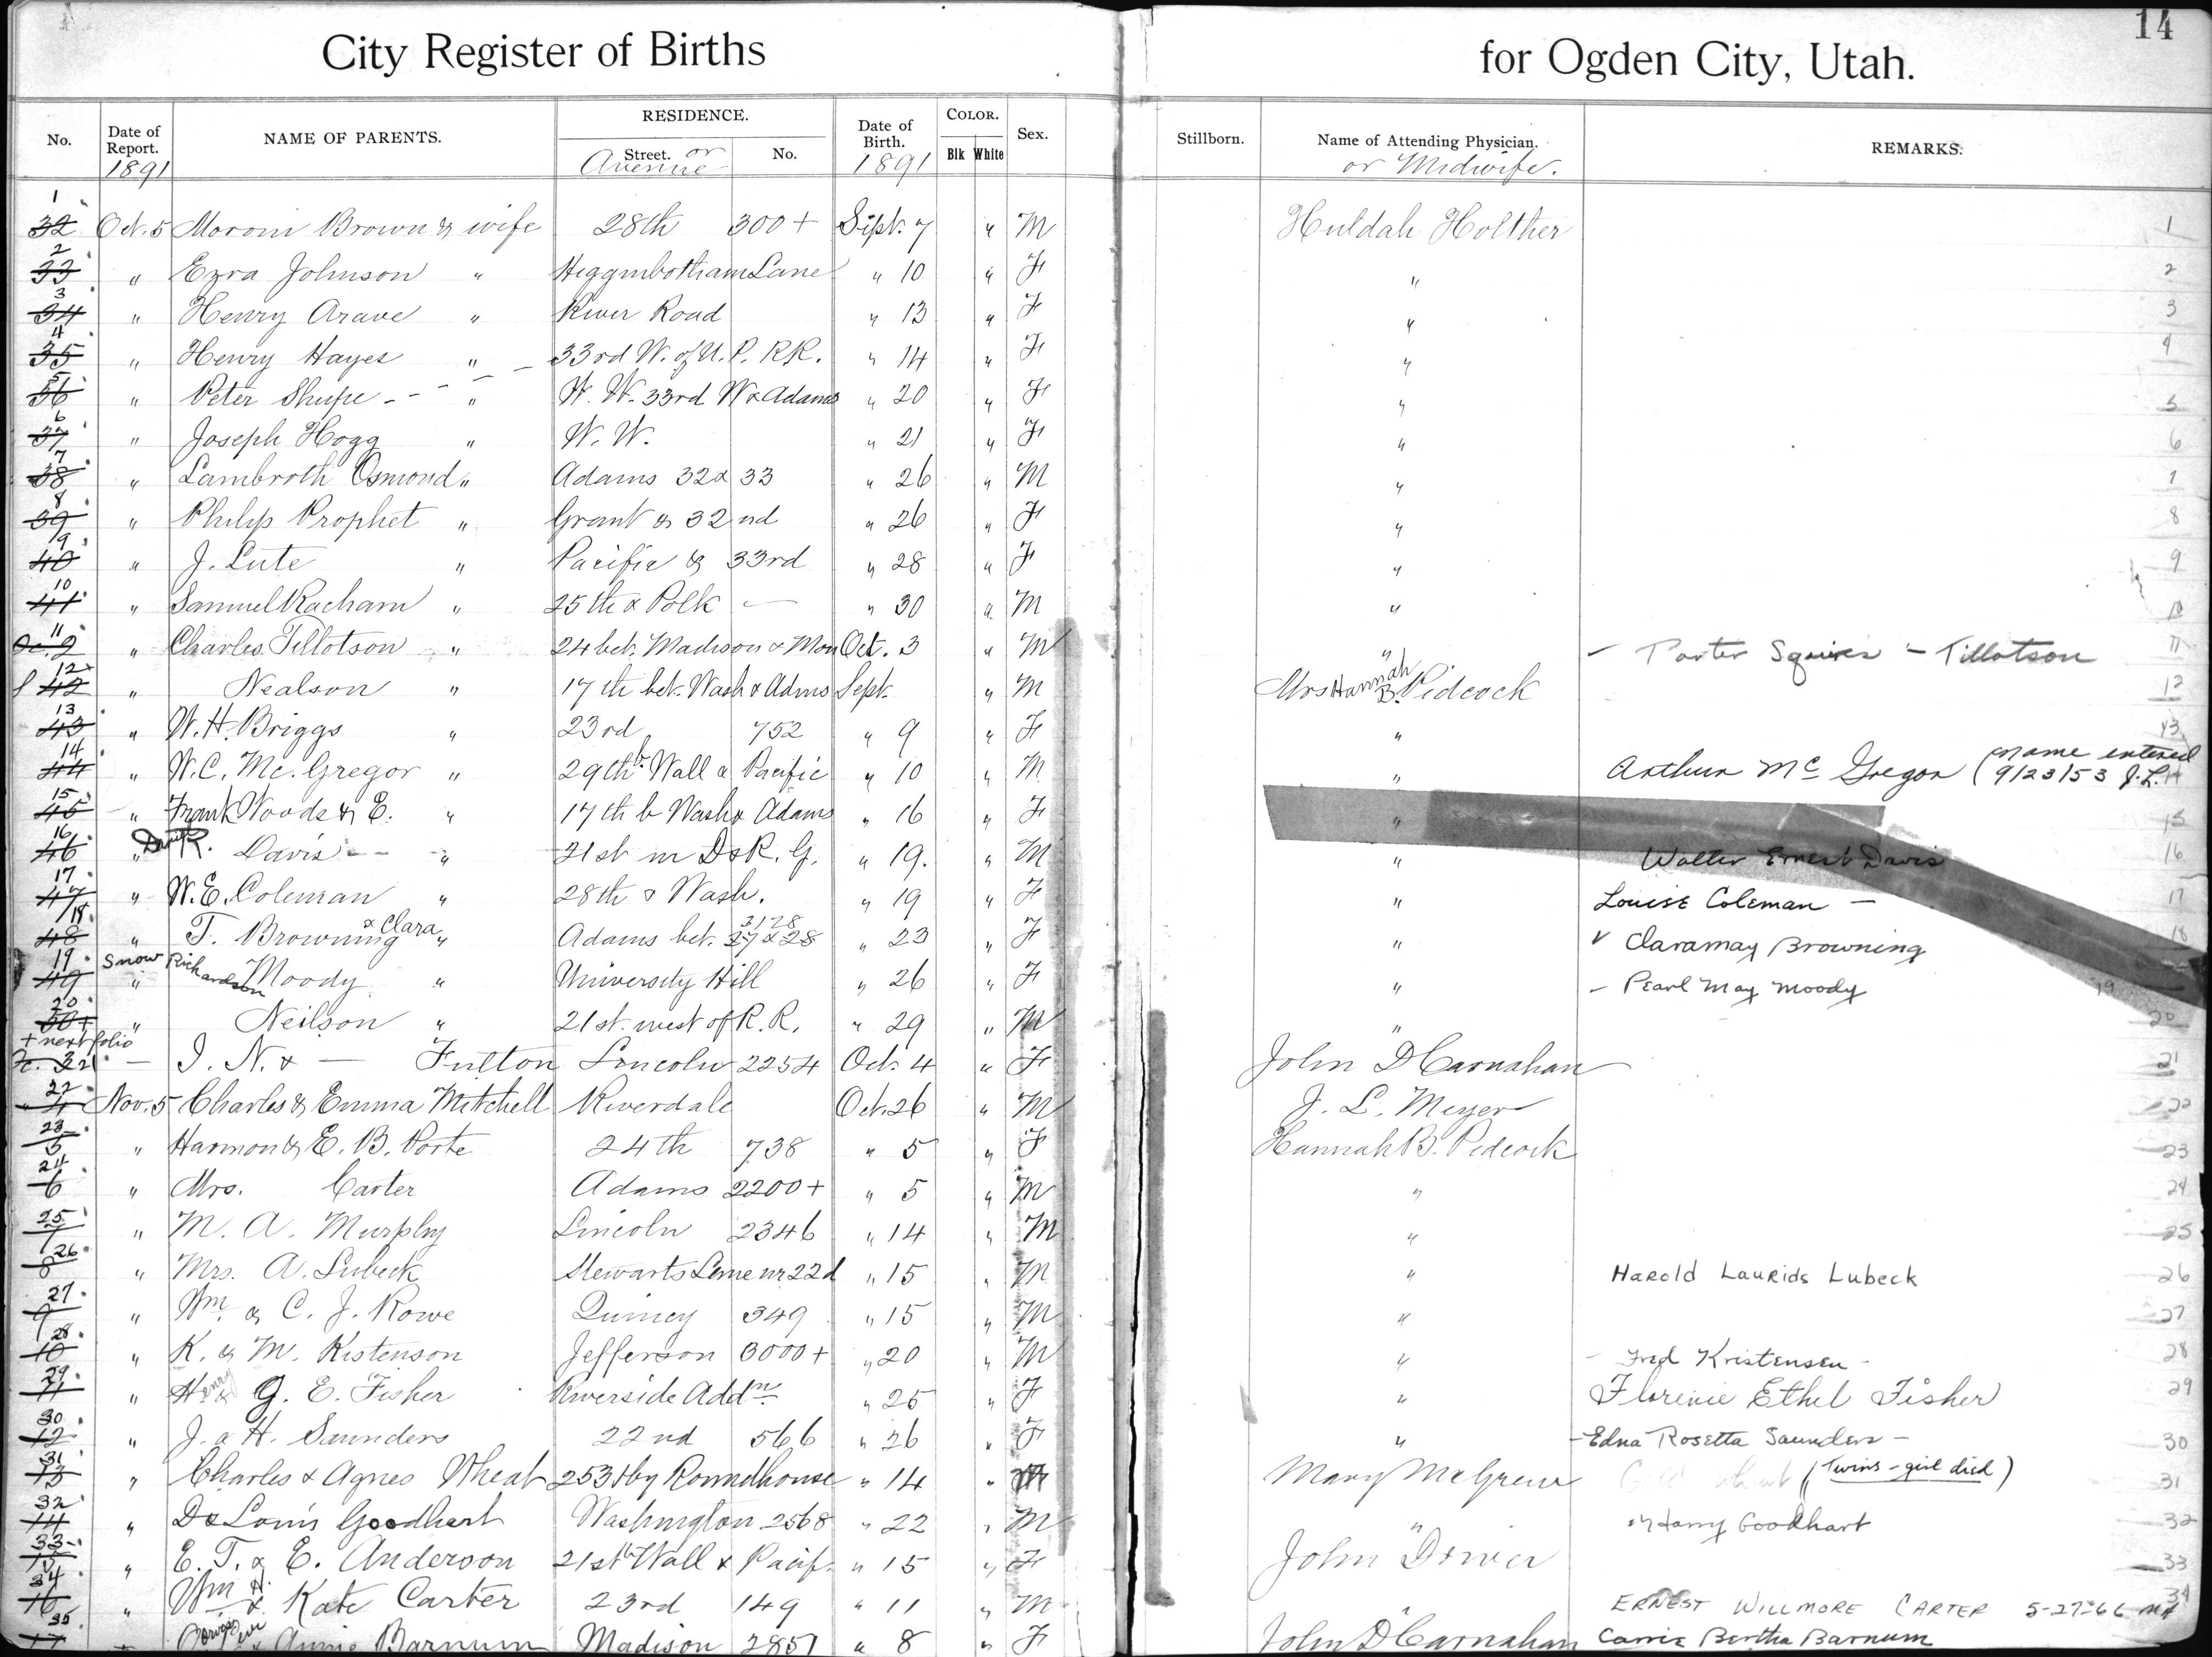 14
City Register of Births for Ogden City, Utah.
No. Date of Report. 1891 NAME OF PARENTS. RESIDENCE. Street. or Avenue No. Date of Birth. 1891 COLOR. Blk White Sex. Stillborn. Name of Attending Physician. or Midwife. REMARKS.
1 32 Oct. 5 Moroni Brown & wife 28th 300+ Sept. 7 " M Huldah Holther 1
2 33 " Ezra Johnson " Higginbotham Lane " 10 " F " 2
3 34 " Henry Arave " River Road " 13 " F " 3
4 35 " Henry Hayes " 33rd W. of U. P. RR. " 14 " F " 4
5 36 " Peter Shupe " W. W. 33rd W & Adams " 20 " F " 5
6 37 " Joseph Hogg " W. W. " 21 " F " 6
7 38 " Lambroth Osmond " Adams 32 & 33 " 26 " M " 7
8 39 " Philip Prophet " Grant & 32nd " 26 " F " 8
9 40 " J. Lute " Pacific & 33rd " 28 " F " 9
10 41 " Samuel Racham " 25th & Polk — " 30 " M " 10
11 " Charles Tillotson " 24 bet. Madison & Mon Oct. 3 " M " – Porter Squires – Tillotson 11
12 42 " Nealson " 17th bet. Wash & Adms Sept. " M Mrs Hannah B. Pidcock 12
13 43 " W. H. Briggs " 23rd 752 " 9 " F " 13
14 44 " W. C. Mc. Gregor " 29th b. Wall & Pacific " 10 " M " Arthur Mc Gregor (name entered 9/23/53 J.L. 14
15 45 " Frank Woods & E. " 17th b Wash & Adams " 16 " F " 15
16 46 " David R. Davis " 21st nr D & R. G. " 19. " M " Walter Ernest Davis 16
17 47 " W. E. Coleman " 28th & Wash. " 19 " F " Louise Coleman – 17
18 48 " T. Browning & Clara " Adams bet. 27 & 28 3128 " 23 " F " v Claramay Browning 18
19 49 " Snow Richardson Moody " University Hill " 26 " F " – Pearl May Moody 19
20 50+ " Neilson " 21st. west of R. R. " 29 " M " 20
+ next folio
21 — I. N. & — Fulton Lincoln 2254 Oct. 4 " F John D Carnahan 21
22 4 Nov. 5 Charles & Emma Mitchell Riverdale Oct. 26 " M J. L. Meyer 22
23 5 " Harmon & E. B. Porte 24th 738 " 5 " F Hannah B. Pidcock 23
24 6 " Mrs. Carter Adams 2200+ " 5 " M " 24
25 7 " M. A. Murphy Lincoln 2346 " 14 " M " 25
26 8 " Mrs. A. Lubeck Stewarts Lane nr 22d " 15 " M " Harold Laurids Lubeck 26
27 9 " Wm. & C. J. Rowe Quincy 349 " 15 " M " 27
28 10 " K. & M. Kistenson Jefferson 3000+ " 20 " M " – Fred Kristensen – 28
29 11 " Henry & G. E. Fisher Riverside Addn " 25 " F " Florence Ethel Fisher 29
30 12 " J. & H. Saunders 22nd 566 " 26 " F " – Edna Rosetta Saunders – 30
31 13 " Charles & Agnes Wheat 253+ by Roundhouse " 14 " M Mary McGrew (Twins - girl died) 31
32 14 " D & Louis Goodhart Washington 2568 " 22 " M " Harry Goodhart 32
33 15 " E. T. & E. Anderson 21st b. Wall & Pacif. " 15 " F John Driver 33
34 16 " Wm H. & Kate Carter 23rd 149 " 11 " M " ERNEST WILLMORE CARTER 5-27-66 34
35 17 & Annie Barnum Madison 2857 " 8 " F John D Carnahan Carrie Bertha Barnum